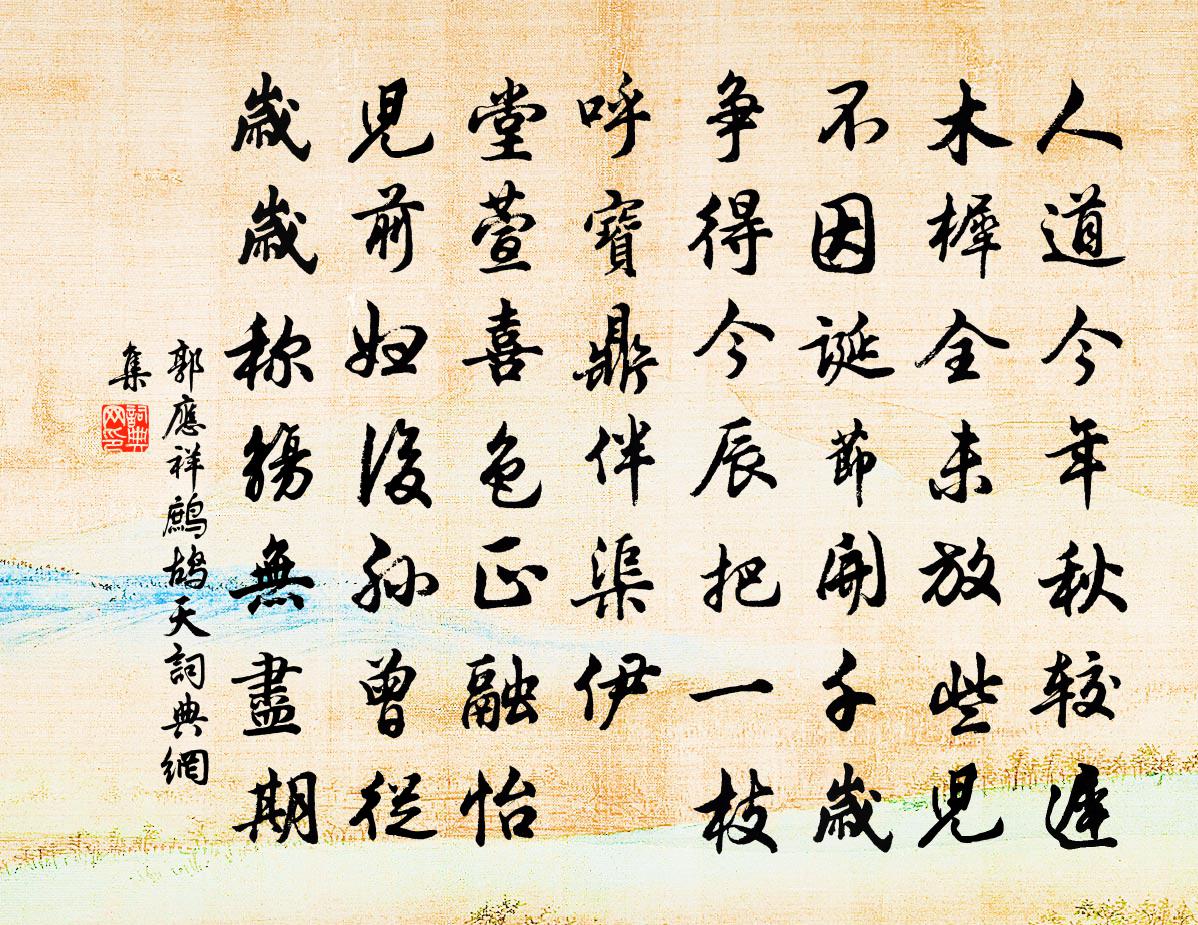 人道今年秋较遲
木樨全未放些児
不因誕節開千歲
争得今辰把一枝
呼寶鼎伴渠伊
堂萱喜色正融怡
児前妇後孙曾從
歲歲称觴無盡期
郭應祥鷓鴣天詞典網
集
詞典網印